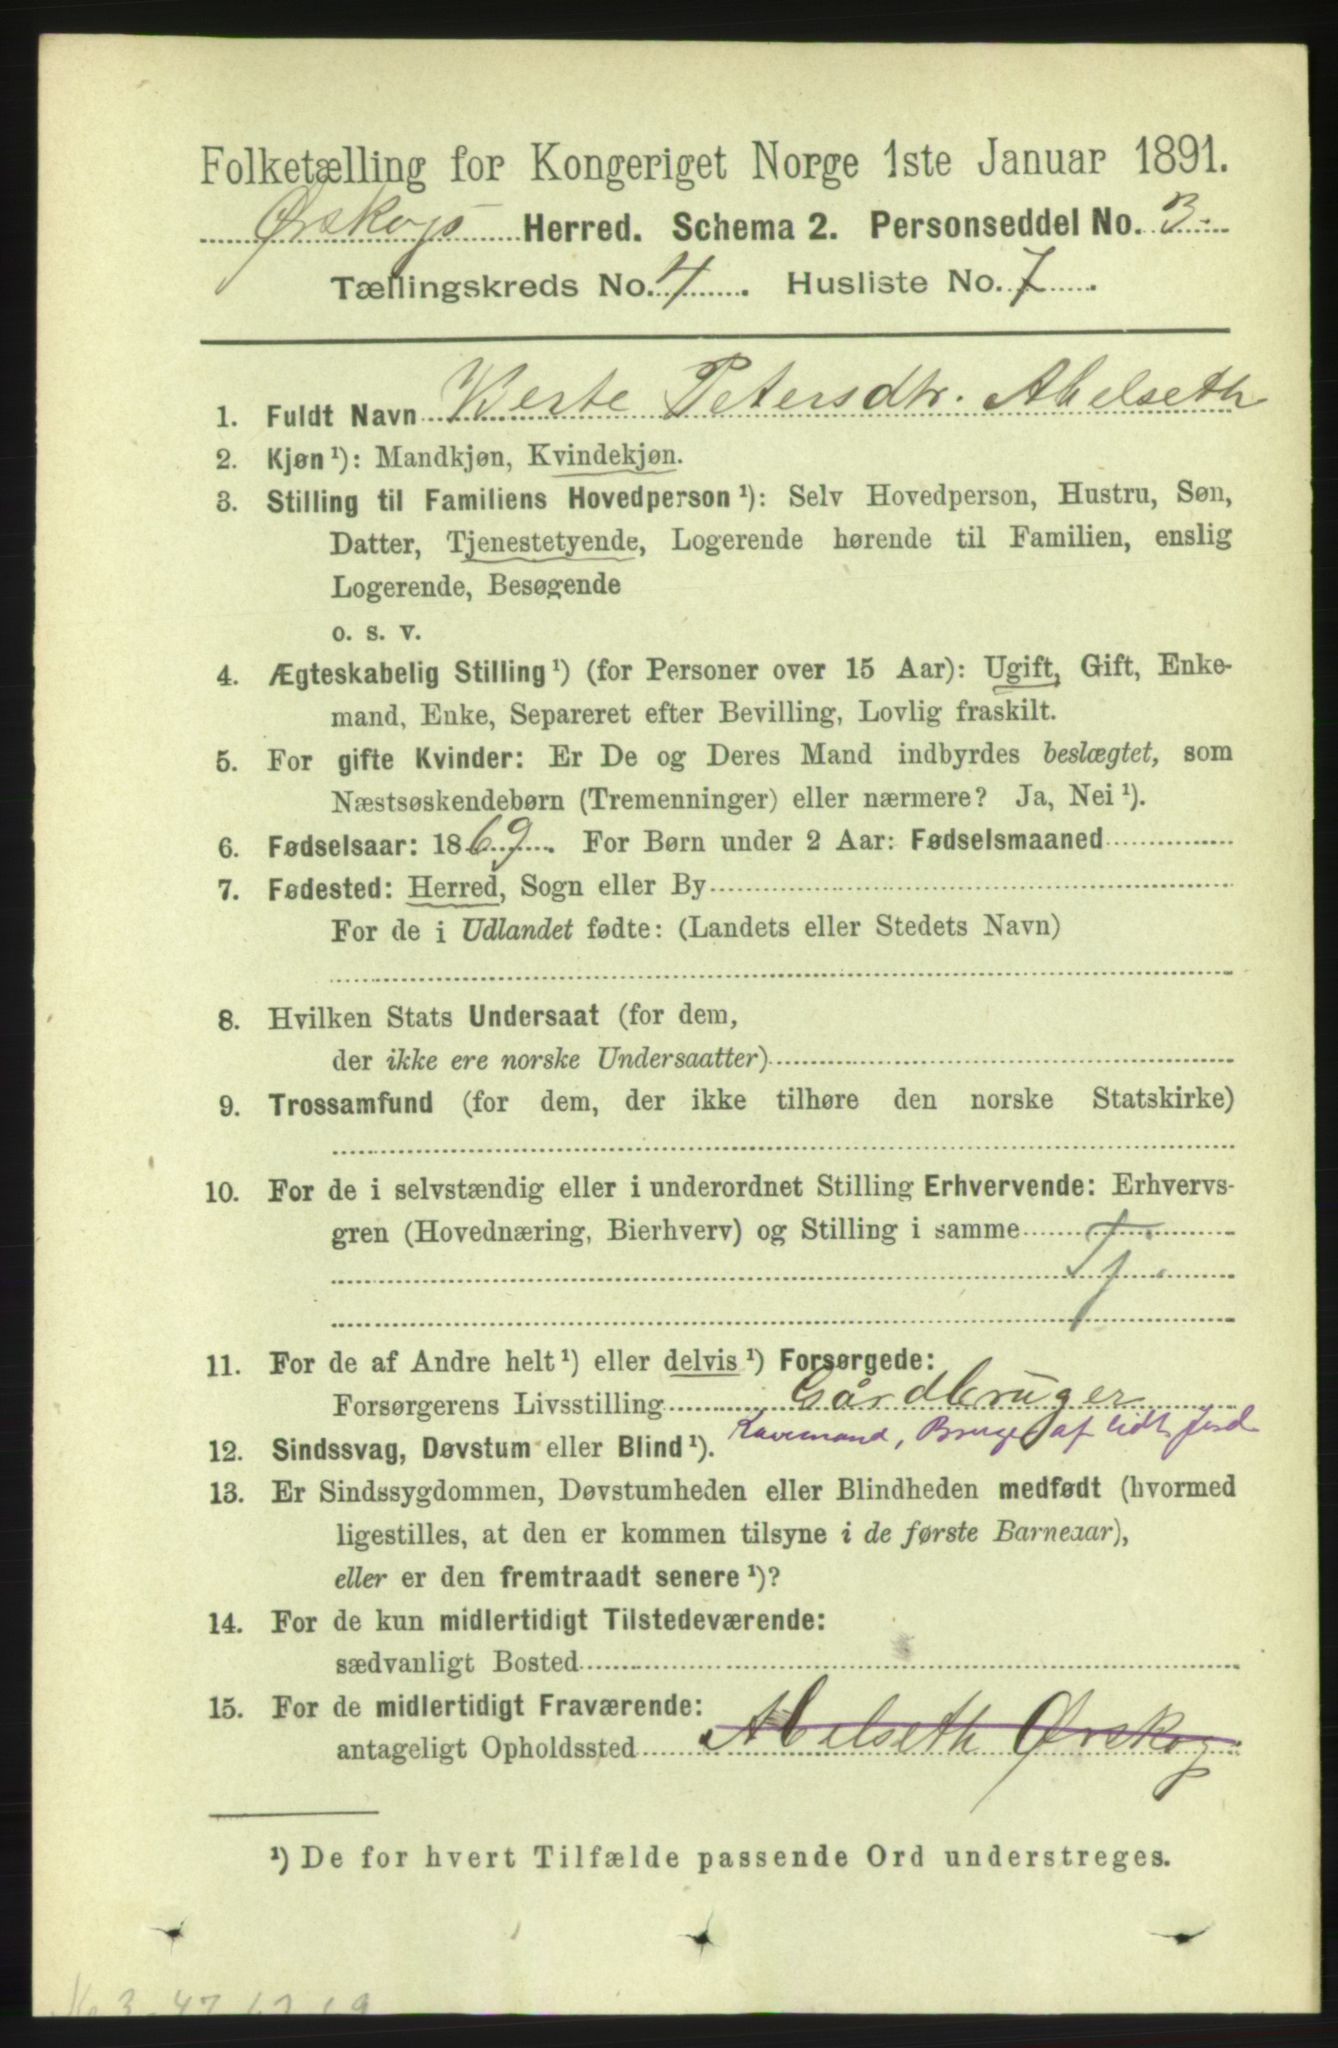 Folketælling for Kongeriget Norge 1ste Januar 1891.
Ørskogs Herred. Schema 2. Personseddel No. 3.
Tællingskreds No. 4. Husliste No. 7.
1. Fuldt Navn Berte Petersdtr. Abelseth
2. Kjøn ¹): Mandkjøn, Kvindekjøn.
3. Stilling til Familiens Hovedperson ¹): Selv Hovedperson, Hustru, Søn,
Datter, Tjenestetyende, Logerende hørende til Familien, enslig
Logerende, Besøgende
o. s. v.
4. Ægteskabelig Stilling ¹) (for Personer over 15 Aar): Ugift, Gift, Enke-
mand, Enke, Separeret efter Bevilling, Lovlig fraskilt.
5. For gifte Kvinder: Er De og Deres Mand indbyrdes beslægtet, som
Næstsøskendebørn (Tremenninger) eller nærmere? Ja, Nei ¹).
6. Fødselsaar: 1869. For Børn under 2 Aar: Fødselsmaaned
7. Fødested: Herred, Sogn eller By
For de i Udlandet fødte: (Landets eller Stedets Navn)
8. Hvilken Stats Undersaat (for dem,
der ikke ere norske Undersaatter)
9. Trossamfund (for dem, der ikke tilhøre den norske Statskirke)
10. For de i selvstændig eller i underordnet Stilling Erhvervende: Erhvervs-
gren (Hovednæring, Bierhverv) og Stilling i samme
Tj.
11. For de af Andre helt ¹) eller delvis ¹) Forsørgede:
Forsørgerens Livsstilling Gårdbruger
Kavemand, Bruger af lidt Jord
12. Sindssvag, Døvstum eller Blind ¹).
13. Er Sindssygdommen, Døvstumheden eller Blindheden medfødt (hvormed
ligestilles, at den er kommen tilsyne i de første Barneaar),
eller er den fremtraadt senere ¹)?
14. For de kun midlertidigt Tilstedeværende:
sædvanligt Bosted
15. For de midlertidigt Fraværende:
antageligt Opholdssted Abelseth Ørskog.
¹) De for hvert Tilfælde passende Ord understreges.